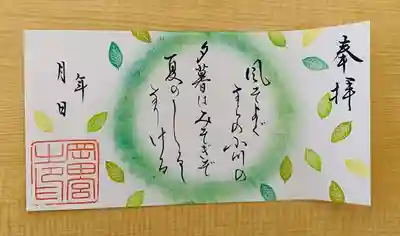 奉拝
風そよぐ
ならの小川の
夕暮はみそぎぞ
夏のしるし
なりける
年
月日